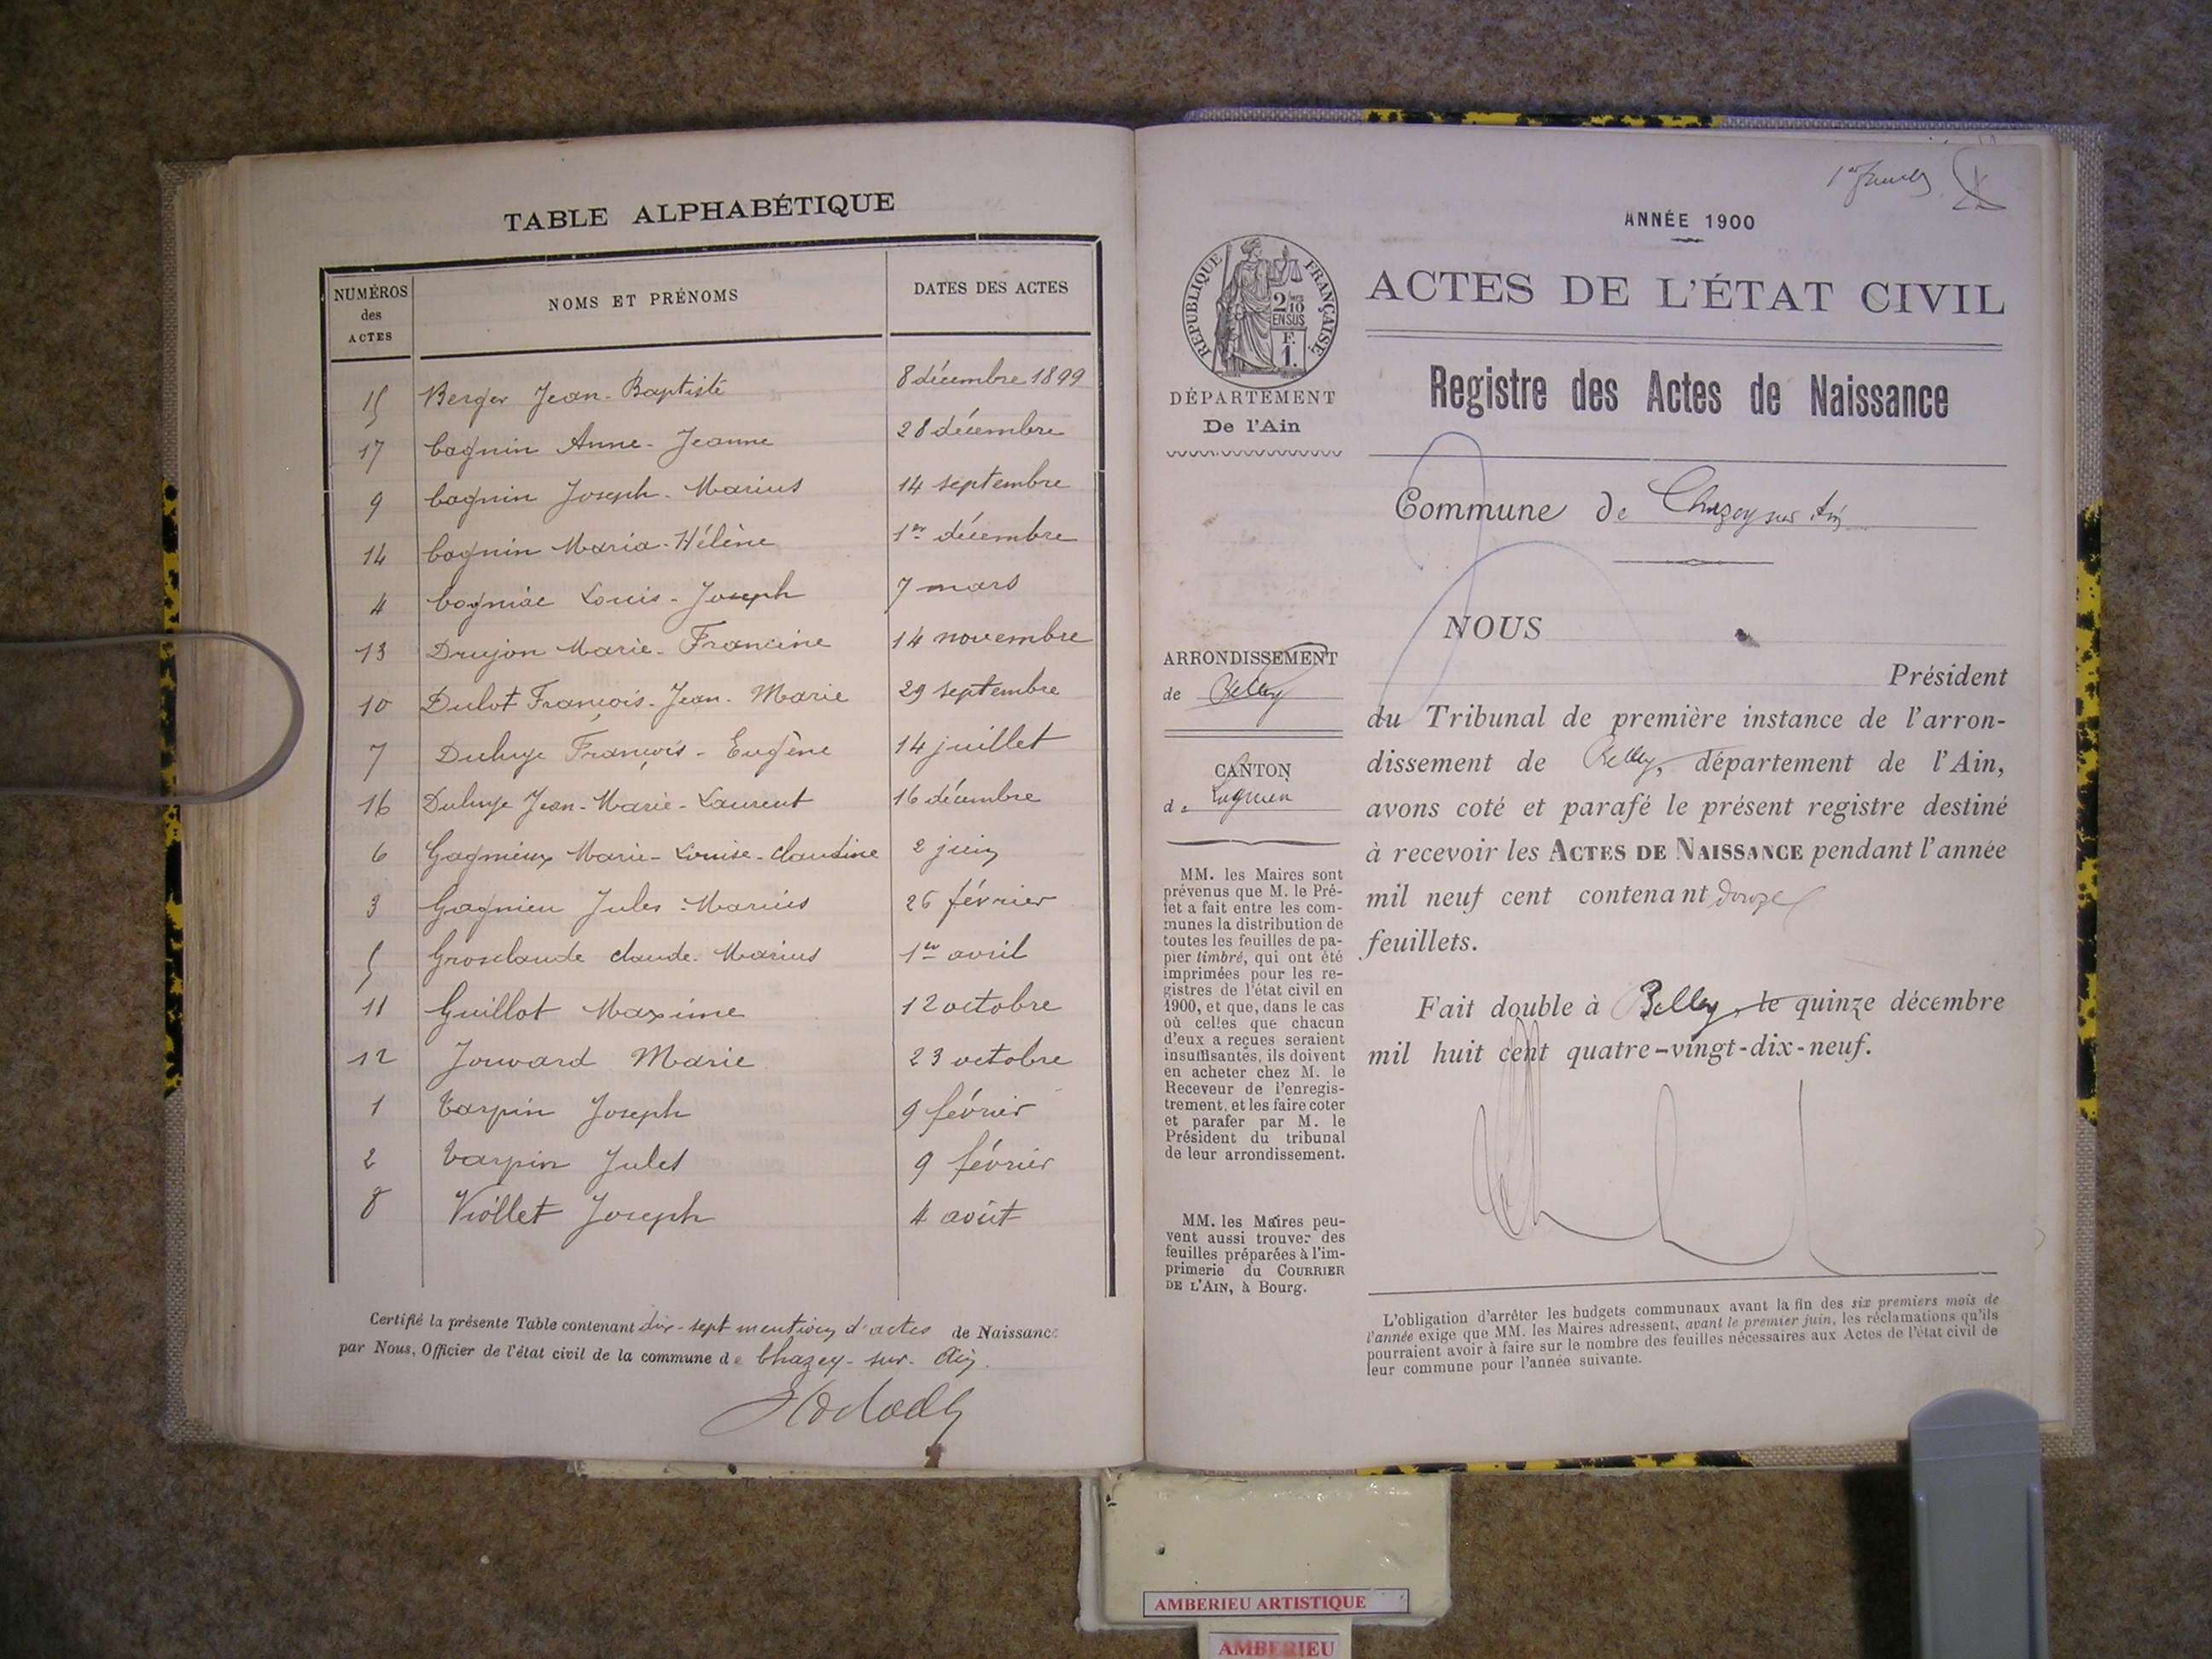 TABLE ALPHABÉTIQUE
NUMÉROS
des
ACTES
NOMS ET PRÉNOMS
DATES DES ACTES
15 Berger Jean-Baptiste 8 décembre 1899
17 Cagnin Anne-Jeanne 28 décembre
9 Cagnin Joseph-Marius 14 septembre
14 Cagnin Maria-Hélène 1er décembre
4 Cogniac Louis-Joseph 7 mars
13 Drujon Marie-Francine 14 novembre
10 Dulot François-Jean-Marie 29 septembre
7 François-Eugène 14 juillet
16 Jean-Marie-Laurent 16 décembre
6 Gagnieux Marie-Louise-Claudine 2 juin
3 Gagnieu Jules-Marius 26 février
5 Grosclaude Claude-Marius 1er avril
11 Guillot Maxime 12 octobre
12 Marie 23 octobre
1 Tarpin Joseph 9 février
2 Tarpin Jules 9 février
8 Viollet Joseph 4 août
Certifié la présente Table contenant dix-sept mentions d'actes de Naissance
par Nous, Officier de l'état civil de la commune de Chazey-sur-Ain.
ANNÉE 1900
ACTES DE L'ÉTAT CIVIL
Registre des Actes de Naissance
Commune de Chazey sur Ain
RÉPUBLIQUE FRANÇAISE
2/10
EN SUS
F.
1.
DÉPARTEMENT
De l'Ain
ARRONDISSEMENT
de Belley
CANTON
de Lagnieu
MM. les Maires sont
prévenus que M. le Pré-
fet a fait entre les com-
munes la distribution de
toutes les feuilles de pa-
pier timbré, qui ont été
imprimées pour les re-
gistres de l'état civil en
1900, et que, dans le cas
où celles que chacun
d'eux a reçues seraient
insuffisantes, ils doivent
en acheter chez M. le
Receveur de l'enregis-
trement, et les faire coter
et parafer par M. le
Président du tribunal
de leur arrondissement.
MM. les Maires peu-
vent aussi trouver des
feuilles préparées à l'im-
primerie du COURRIER
DE L'AIN, à Bourg.
NOUS
Président
du Tribunal de première instance de l'arron-
dissement de Belley, département de l'Ain,
avons coté et parafé le présent registre destiné
à recevoir les ACTES DE NAISSANCE pendant l'année
mil neuf cent contenant douze
feuillets.
Fait double à Belley, le quinze décembre
mil huit cent quatre-vingt-dix-neuf.
L'obligation d'arrêter les budgets communaux avant la fin des six premiers mois de
l'année exige que MM. les Maires adressent, avant le premier juin, les réclamations qu'ils
pourraient avoir à faire sur le nombre des feuilles nécessaires aux Actes de l'état civil de
leur commune pour l'année suivante.
AMBERIEU ARTISTIQUE
AMBERIEU